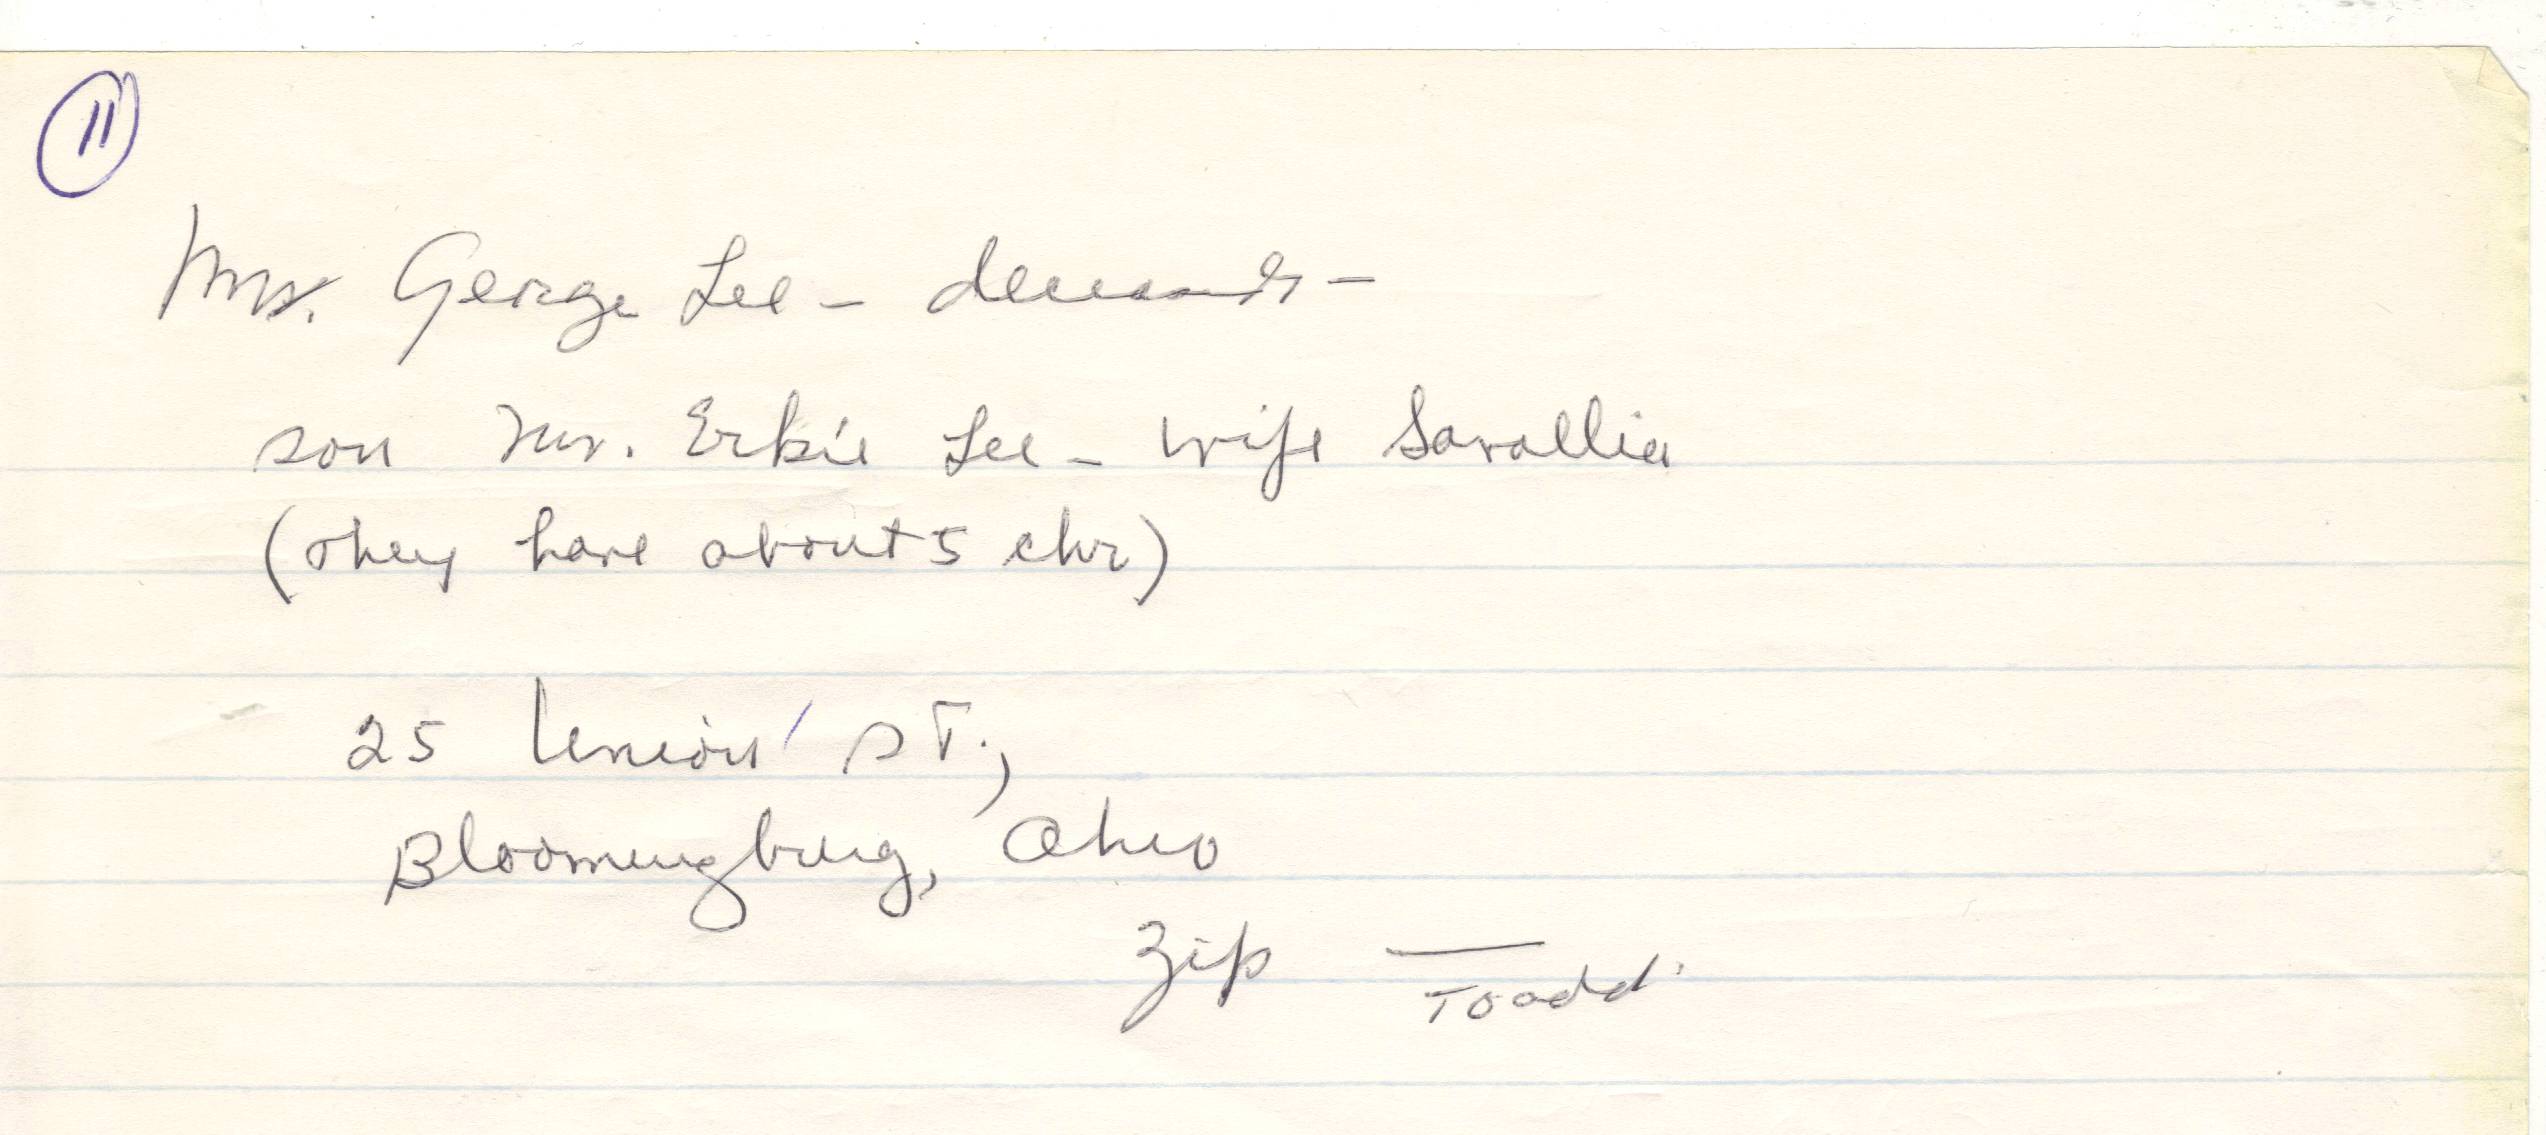 11
Mrs. George Lee -
son Mr. Erbie Lee - wife Savallia
(they have about 5 chr)
25 Union St.,
Bloomingburg, Ohio
Zip —
To add